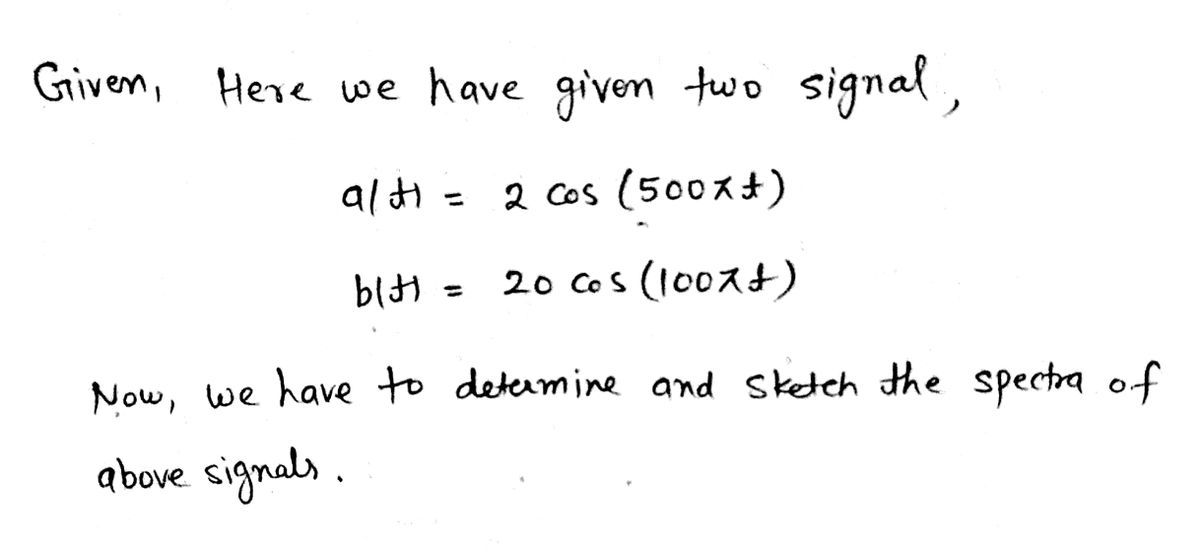 Given, Here we have given two signal,
a(t) = 2 cos (500πt)
b(t) = 20 cos (100πt)
Now, we have to determine and sketch the spectra of
above signals.